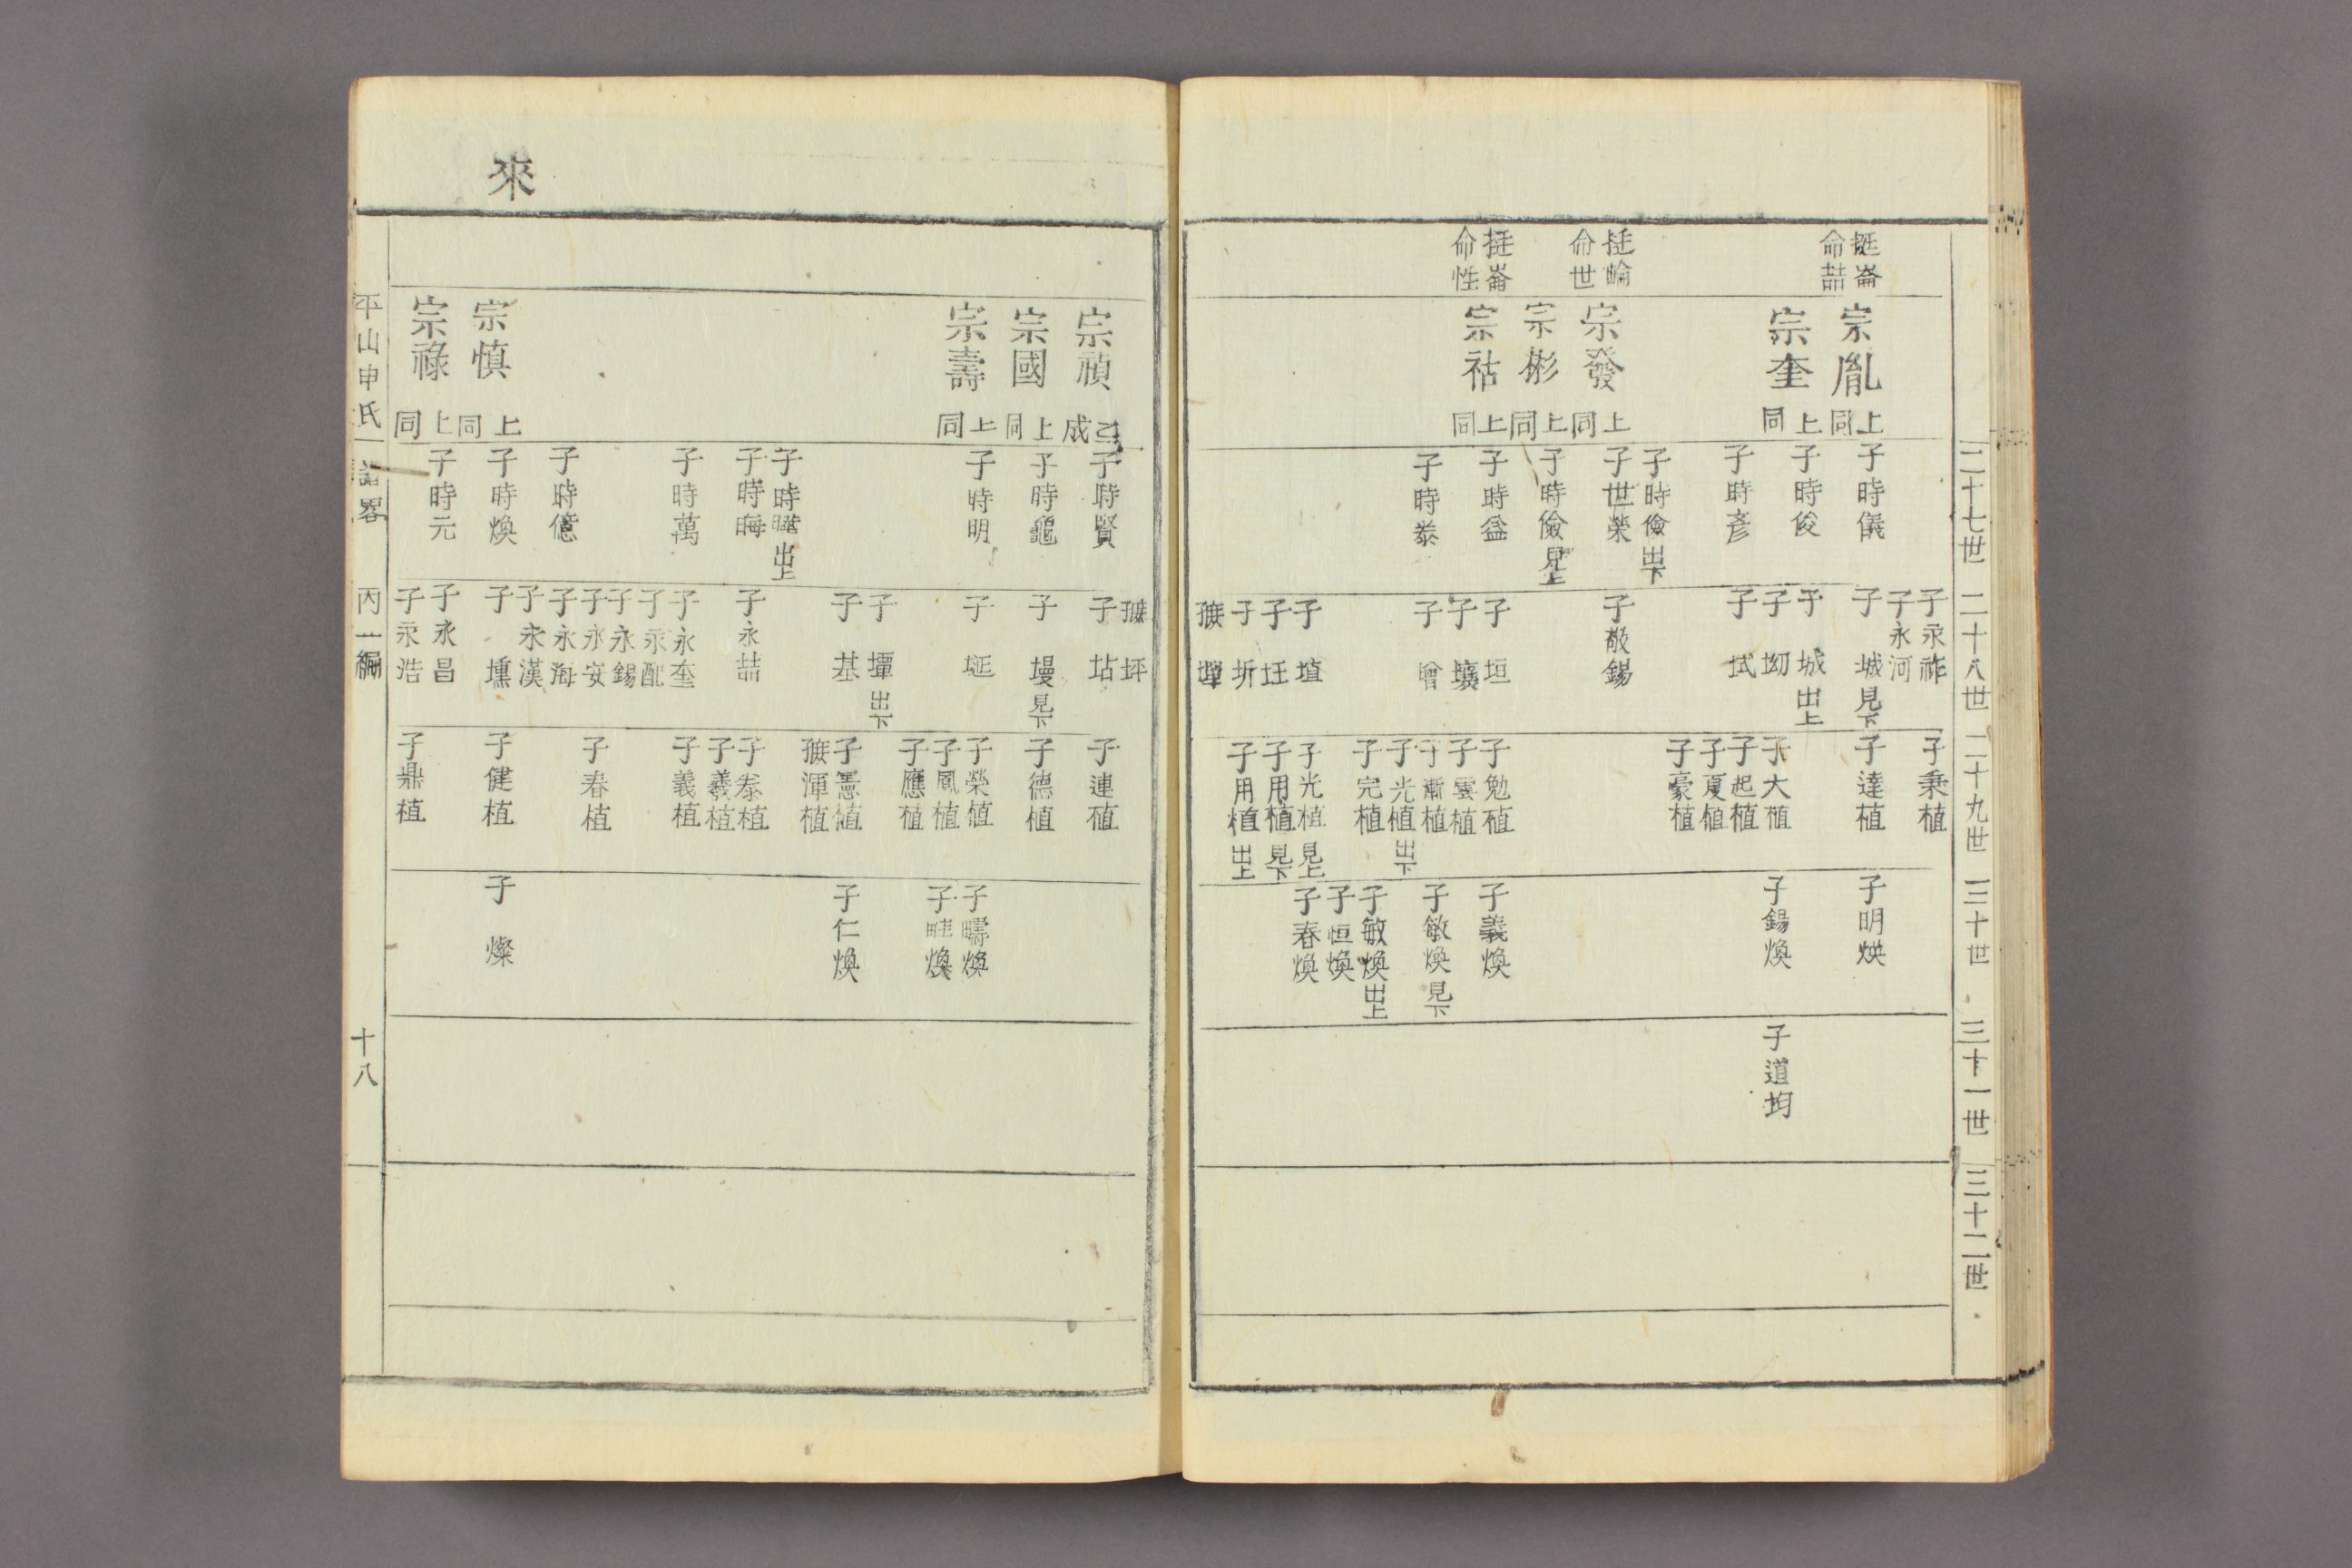 二十七世
二十八世
二十九世
三十世
三十一世
三十二世
挺崙
命喆
挺崘
命世
挺崙
命性
宗胤 上同
宗奎 上同
宗發 上同
宗彬 上同
宗祜 上同
子時儀
子時俊
子時彥
子時儉 出下
子世榮
子時儉 見上
子時益
子時泰
子永祚
子永河
子城 見下
子城 出上
子坳
子拭
子敬錫
子垣
子壤
子
子埴
子玨
子圻
子秉植
子達植
子大植
子起植
子夏植
子豪植
子勉植
子雲植
子漸植
子光植 出下
子完植
子光植 見上
子用植 見下
子用植 出上
子明煐
子錫煥
子義煥
子敏煥 見下
子敏煥 出上
子恒煥
子春煥
子道均
來
宗禎 乙成
宗國 上同
宗壽 上同
宗慎 上同
宗祿 上同
子時賢
子時龜
子時明
子時曄 出上
子時晦
子時萬
子時億
子時煥
子時元
坪
子坫
子墁 見下
子埏
子墠 出下
子基
子永喆
子永奎
子永配
子永錫
子永安
子永海
子永漢
子壎
子永昌
子永浩
子連植
子德植
子榮植
子鳳植
子應植
子憲植
渾植
子泰植
子羲植
子義植
子春植
子健植
子鼎植
子疇煥
子畦煥
子仁煥
子燦
平山申氏譜畧 丙一編 十八